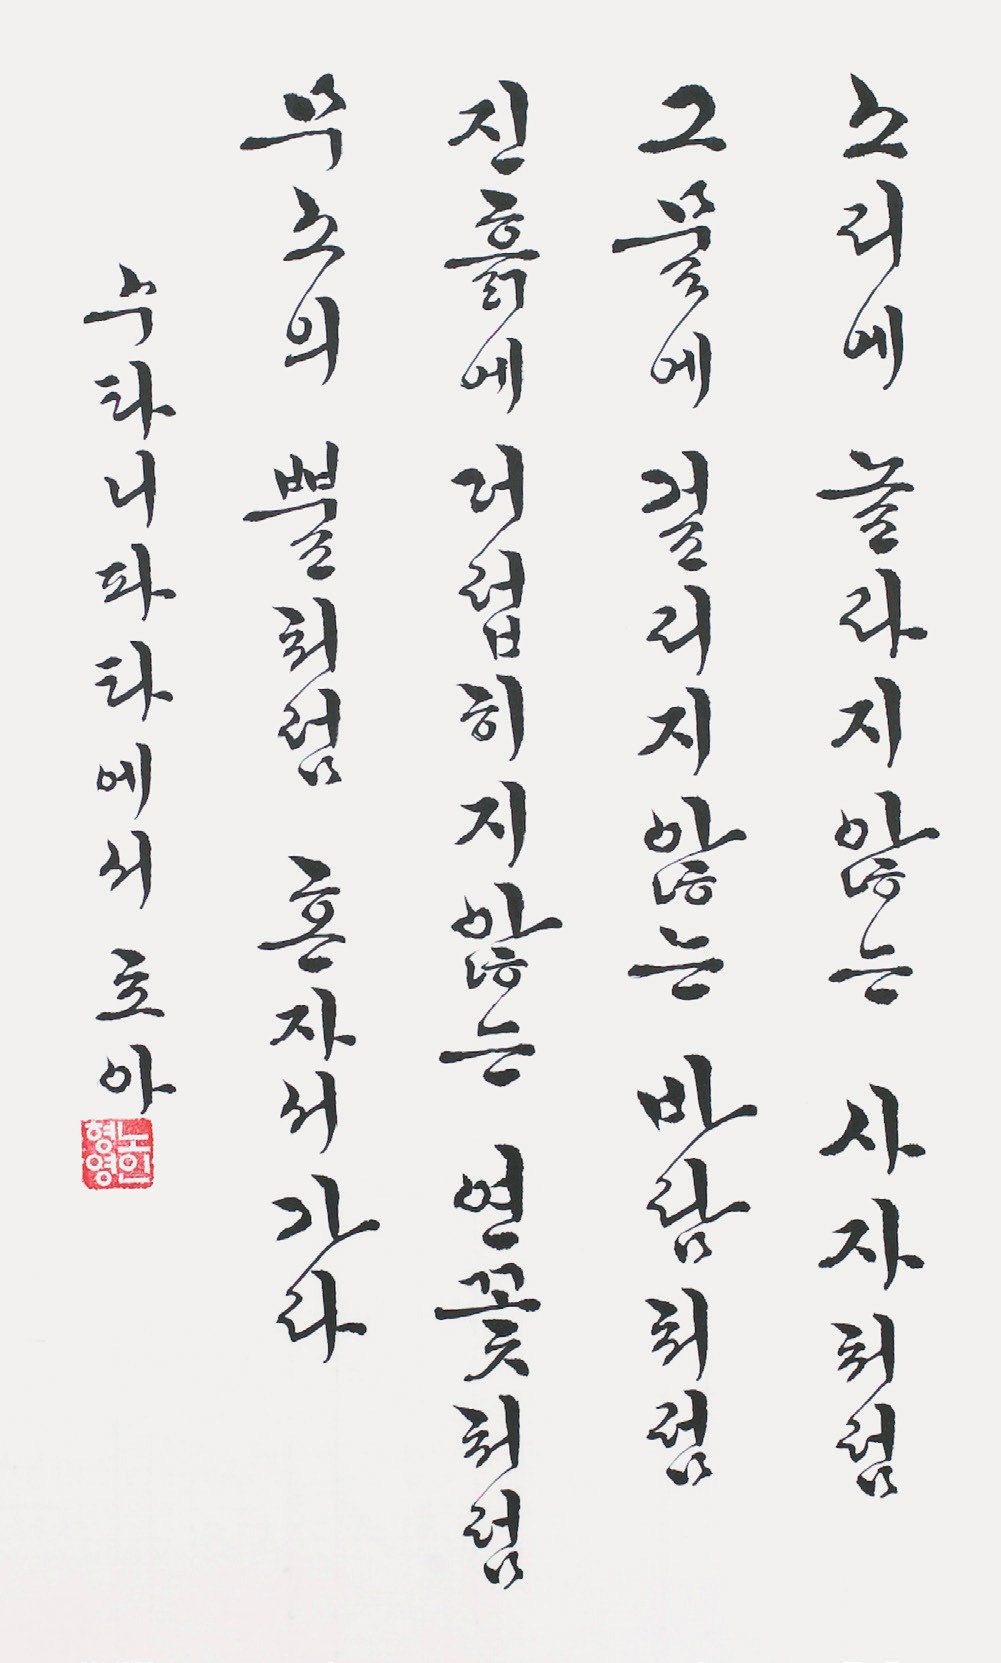 소리에 놀라지 않는 사자처럼
그물에 걸리지 않는 바람처럼
진흙에 더럽히지 않는 연꽃처럼
무소의 뿔처럼 혼자서 가라
수타니파타에서 효아
노인
형영